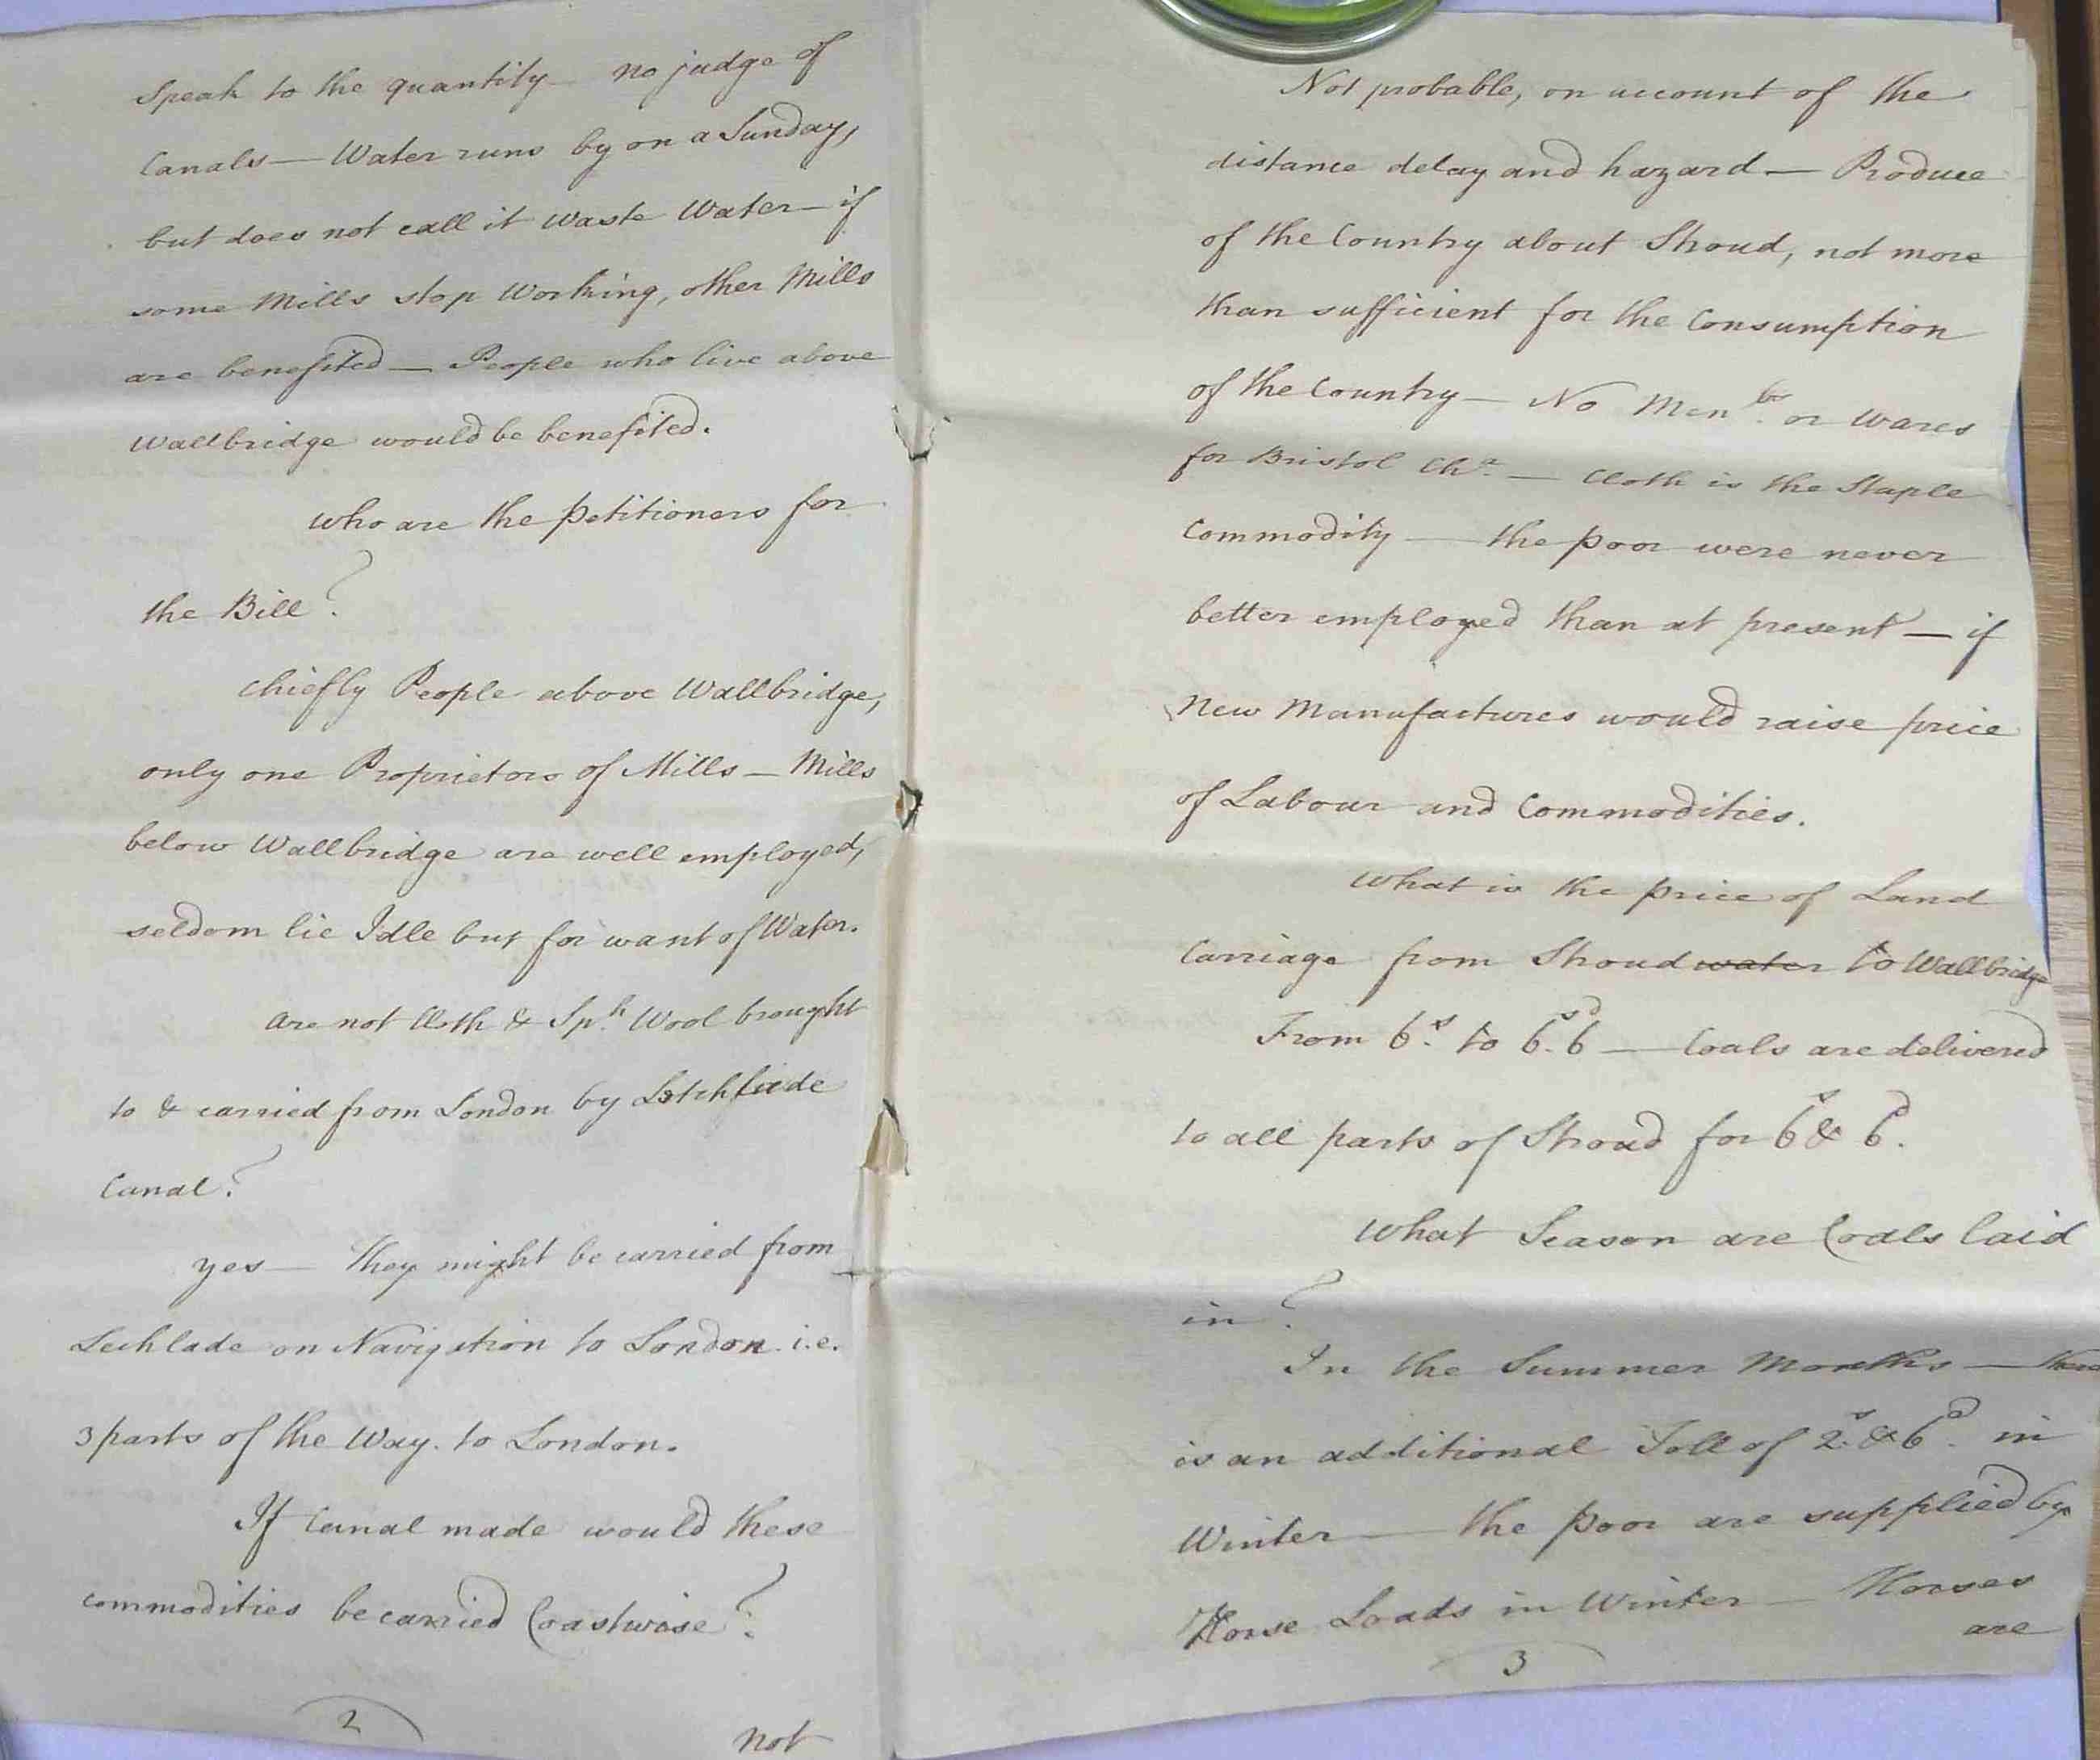 Speak to the quantity - no judge of
Canals — Water runs by on a Sunday,
but does not call it waste Water - if
some Mills stop Working, other Mills
are benefited — People who live above
Wallbridge would be benefited.
Who are the Petitioners for
the Bill?
Chiefly People above Wallbridge,
only one Proprietors of Mills - Mills
below Wallbridge are well employed,
seldom lie Idle but for want of Water.
Are not Cloth & Sp.h Wool brought
to & carried from London by Letchlade
Canal?
Yes — they might be carried from
Lechlade on Navigation to London i.e.
3 parts of the Way to London.
If Canal made would these
commodities be carried Coastwise?
2
not
Not probable, on account of the
distance delay and hazard — Produce
of the Country about Stroud, not more
than sufficient for the Consumption
of the Country - No or Wares
for Bristol Ch.a — Cloth is the Staple
Commodity — the Poor were never
better employed than at present — if
New Manufactures would raise price
of Labour and Commodities.
What is the price of Land
Carriage from Stroudwater to Wallbridge
From 6.s to 6.s 6d — Coals are delivered
to all parts of Stroud for 6s & 6d.
What Season are Coals laid
in?
In the Summer Months — there
is an additional Toll of 2.s & 6.d in
Winter — the Poor are supplied by
Horse Loads in Winter — Horses
are
3